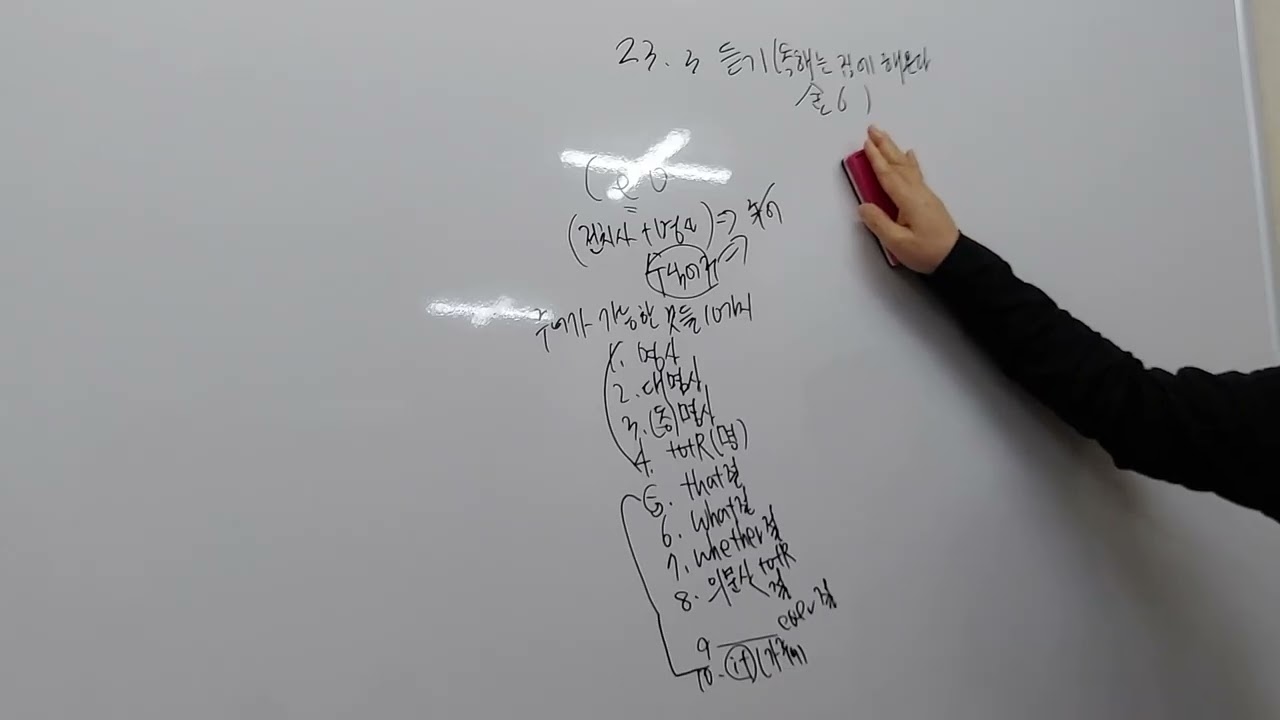 23. 3 듣기(독해는 집에 해온다
(전치사 + 명사) => 주어
주어가 가능한 것들 10가지
1. 명사
2. 대명사
3. (동)명사
4. to+R(명)
5. that절
6. what절
7. whether절
8. 의문사 to+R
절
9 ever절
10. it(가주어)